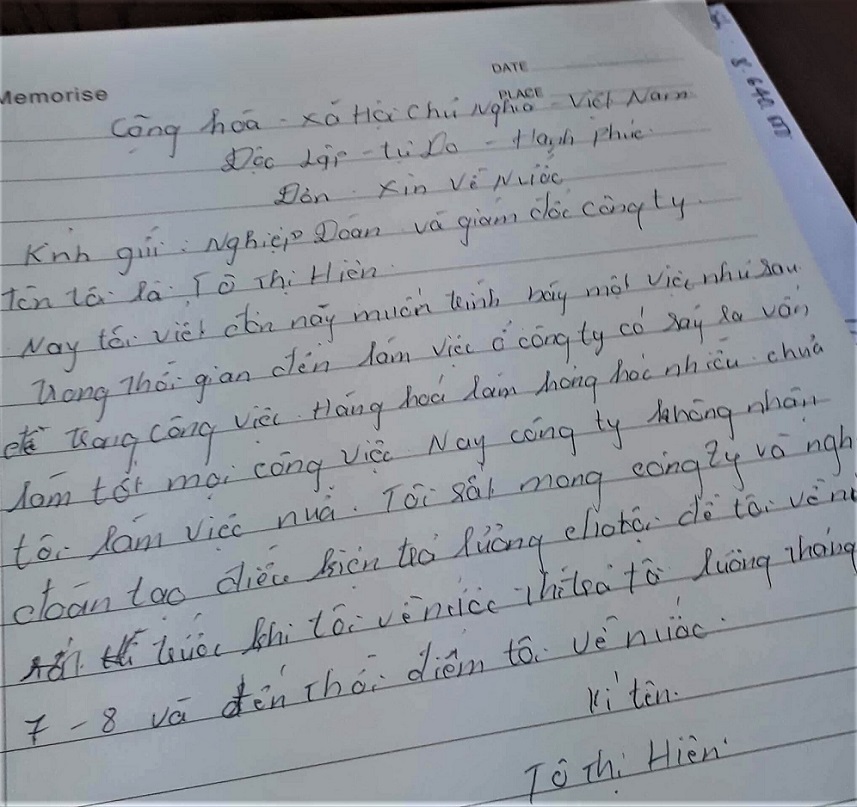 Memorise
DATE
PLACE
Cộng hoà - xã Hội chủ Nghĩa - Việt Nam
Độc lập - tự Do - Hạnh phúc.
Đơn xin về Nước
Knh gửi: Nghiệp Đoàn và giám đốc công ty.
Tên tôi là: Tô Thị Hiên.
Nay tôi viết đơn này muốn trình bày một việc như sau
Trong thời gian đến làm việc ở công ty có sảy ra vấn
đề trong công việc. Hàng hoá làm hỏng hóc nhiều. chưa
làm tốt mọi công việc. Nay công ty không nhận
tôi làm việc nữa. Tôi rất mong công ty và ngh
đoàn tạo điều kiện trả lương cho tôi để tôi về nư
trước khi tôi về nước thì trả tô lương tháng
7 - 8 và đến thời điểm tôi về nước.
Kí tên.
Tô Thị Hiên.
8.640